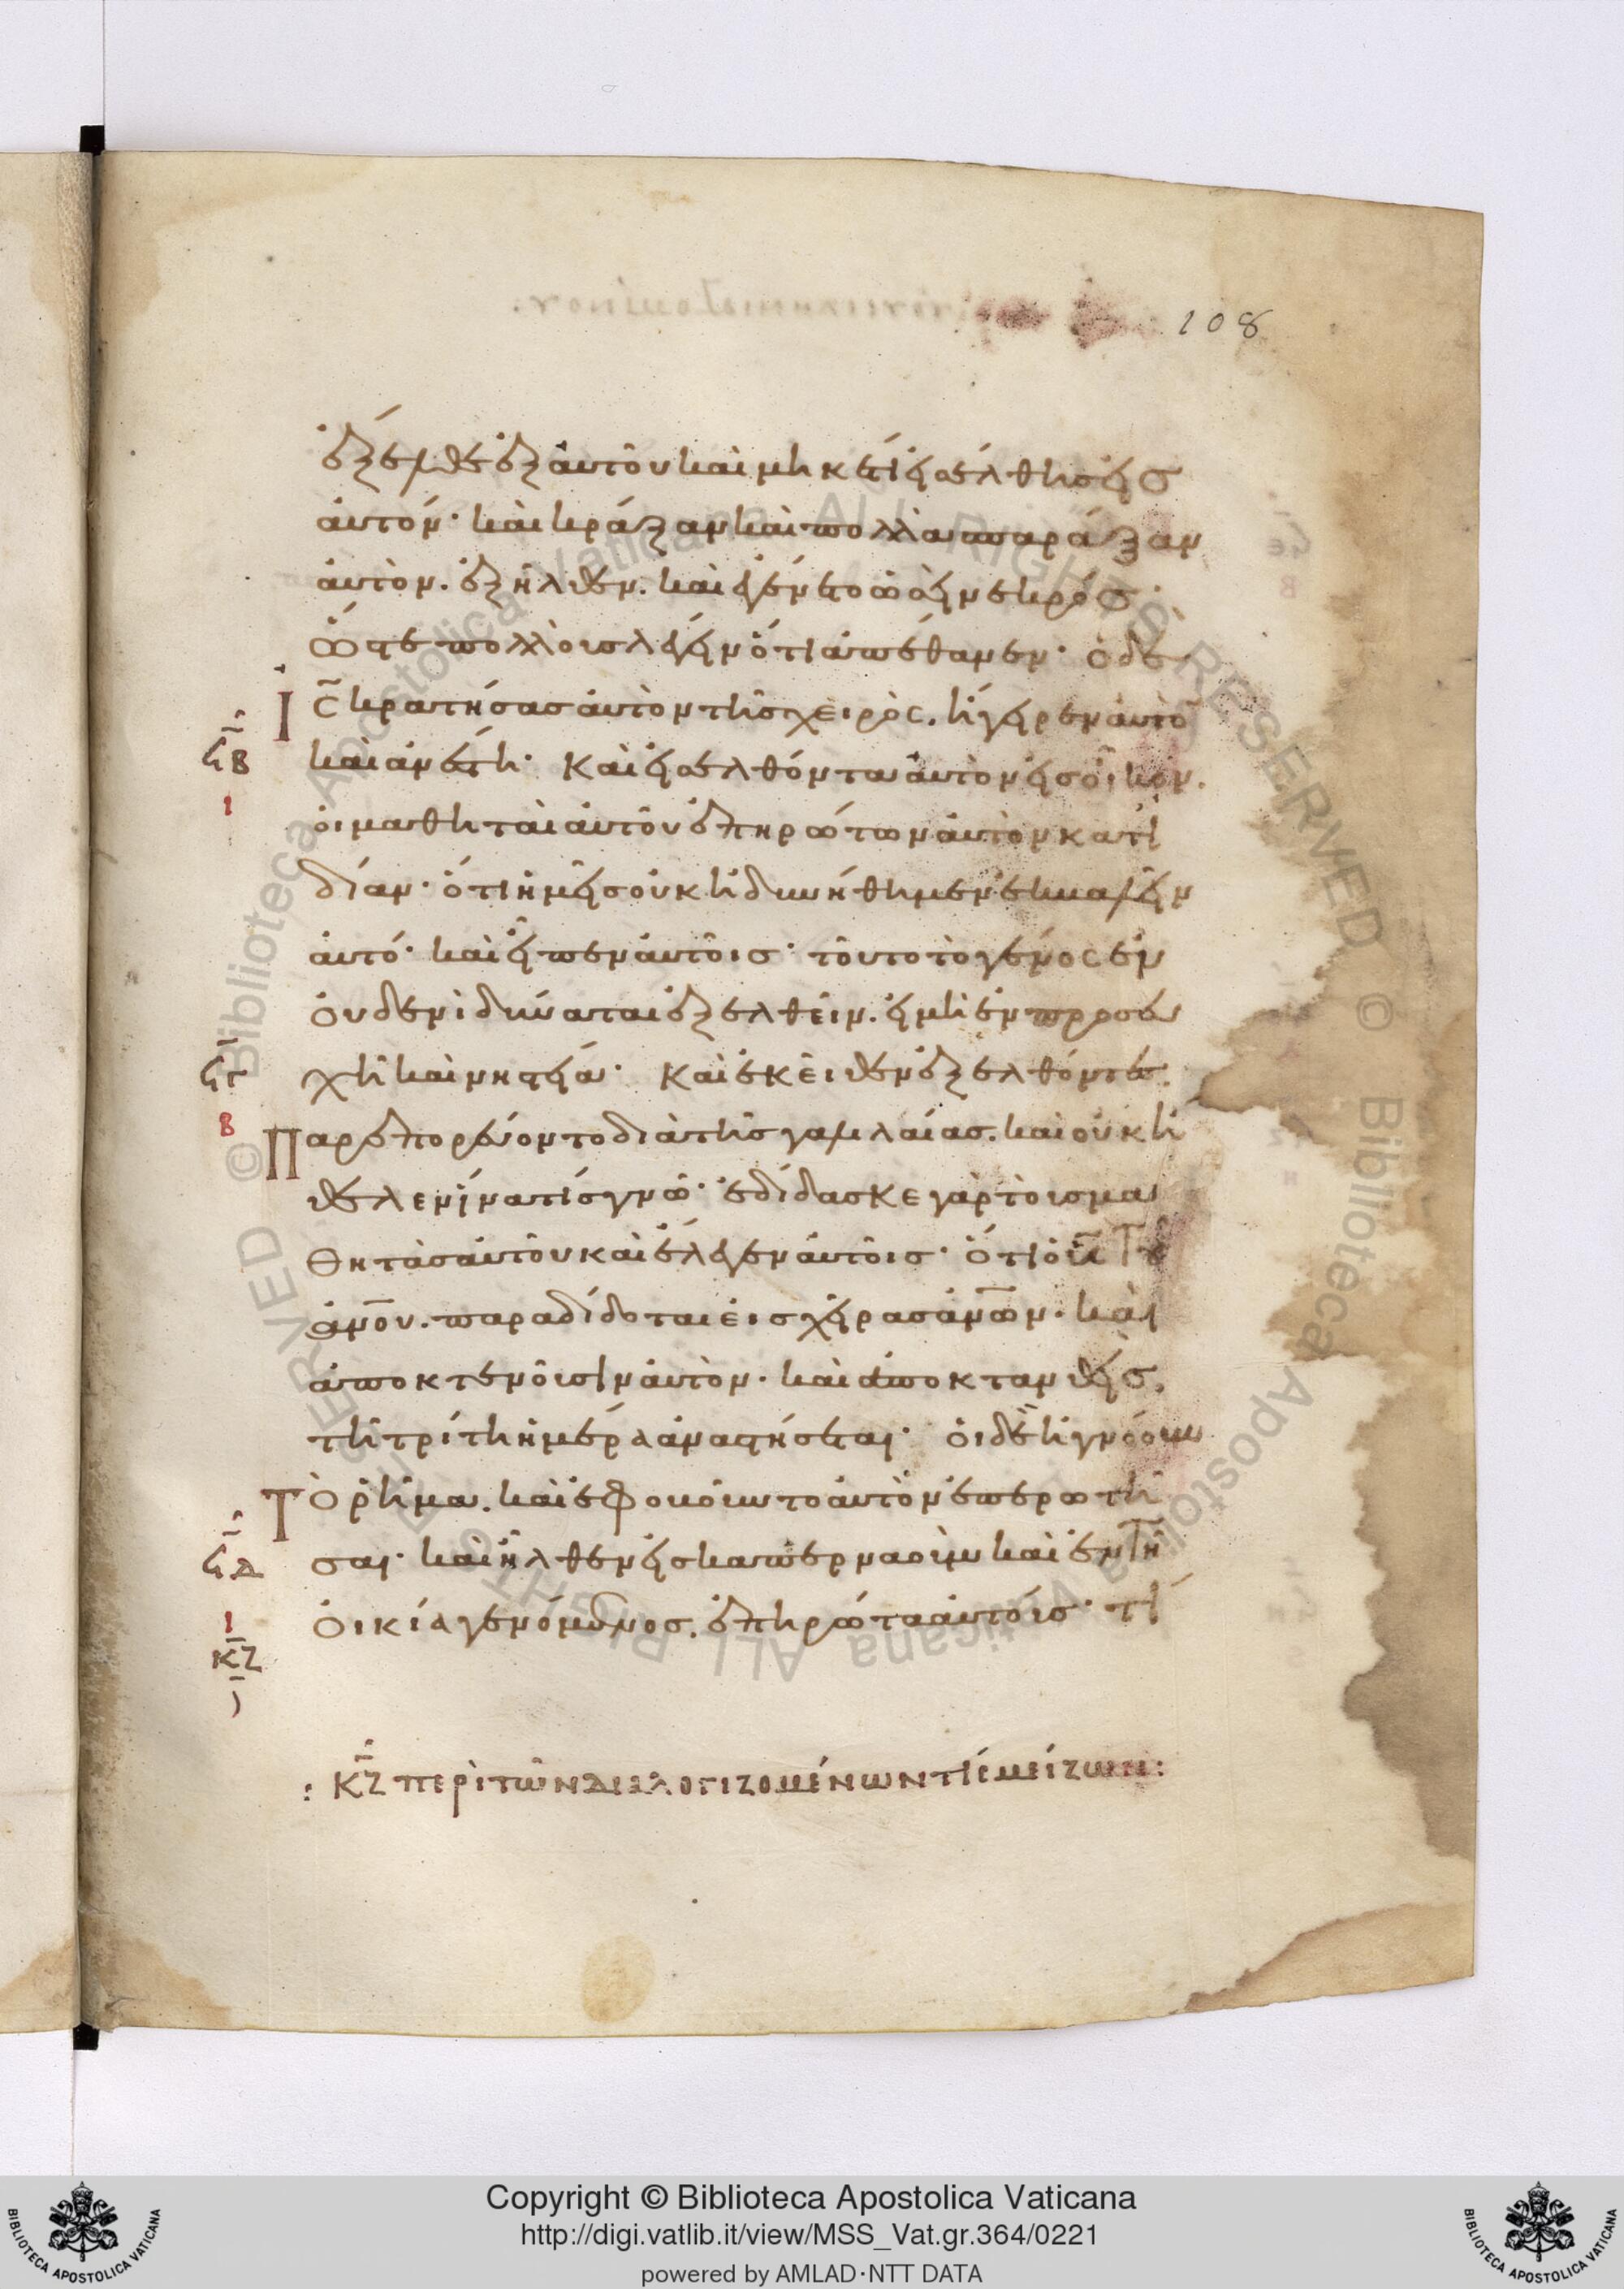 108
ἔξελθε ἐξ αὐτοῦ καὶ μηκέτι εἰσέλθης εἰς
αὐτόν· καὶ κράξαν καὶ πολλὰ σπαράξαν
αὐτὸν. ἐξῆλθεν. καὶ ἐγένετο ὡσεὶ νεκρός·
ὥστε πολλοὺς λέγειν ὅτι ἀπέθανεν· ὁ δὲ
Ις κρατήσας αὐτὸν τῆς χειρὸς. ἤγειρεν αὐτὸ
ϟβ
ι
καὶ ἀνέστη· Καὶ εἰσελθόντα αὐτὸν εἰς οἶκον.
οἱ μαθηταὶ αὐτοῦ ἐπηρώτων αὐτὸν κατἰ
δίαν· ὅτι ἡμεῖς οὐκ ἠδυνήθημεν ἐκβαλεῖν
αὐτό· καὶ εἶπεν αὐτοῖς· τοῦτο τὸ γένος ἐν
οὐδενὶ δύναται ἐξελθεῖν. εἰ μὴ ἐν προσευ
ϟγ
β
χῆ καὶ νηστεία· Καὶ ἐκεῖθεν ἐξελθόντες.
Παρεπορεύοντο διὰ τῆς γαλιλαίας. καὶ οὐκ ἤ
θελεν ἵνα τίς γνῶ· ἐδίδασκε γὰρ τοὺς μα
θητὰς αὐτοῦ καὶ ἔλεγεν αὐτοῖς· ὅτι ὁ υς τοῦ
ανου. παραδίδοται εἰς χεῖρας ανων. καὶ
ἀποκτενοῦσιν αὐτὸν. καὶ ἀποκτανθεὶς.
τῆ τρίτη ἡμέρα ἀναστήσεται· οἱ δὲ ἠγνόουν
Τὸ ῥῆμα. καὶ ἐφοβοῦντο αὐτὸν ἐπερωτῆ
ϟδ
ι
κζ
σαι· καὶ ἦλθεν εἰς καπερναοὺμ καὶ ἐν τῆ
οἰκία γενόμενος. ἐπηρώτα αὐτούς· τί
: κζ περὶ τῶν διαλογιζομένων τίς μείζων:
Copyright © Biblioteca Apostolica Vaticana
http://digi.vatlib.it/view/MSS_Vat.gr.364/0221
powered by AMLAD·NTT DATA
BIBLIOTECA APOSTOLICA VATICANA
BIBLIOTECA APOSTOLICA VATICANA